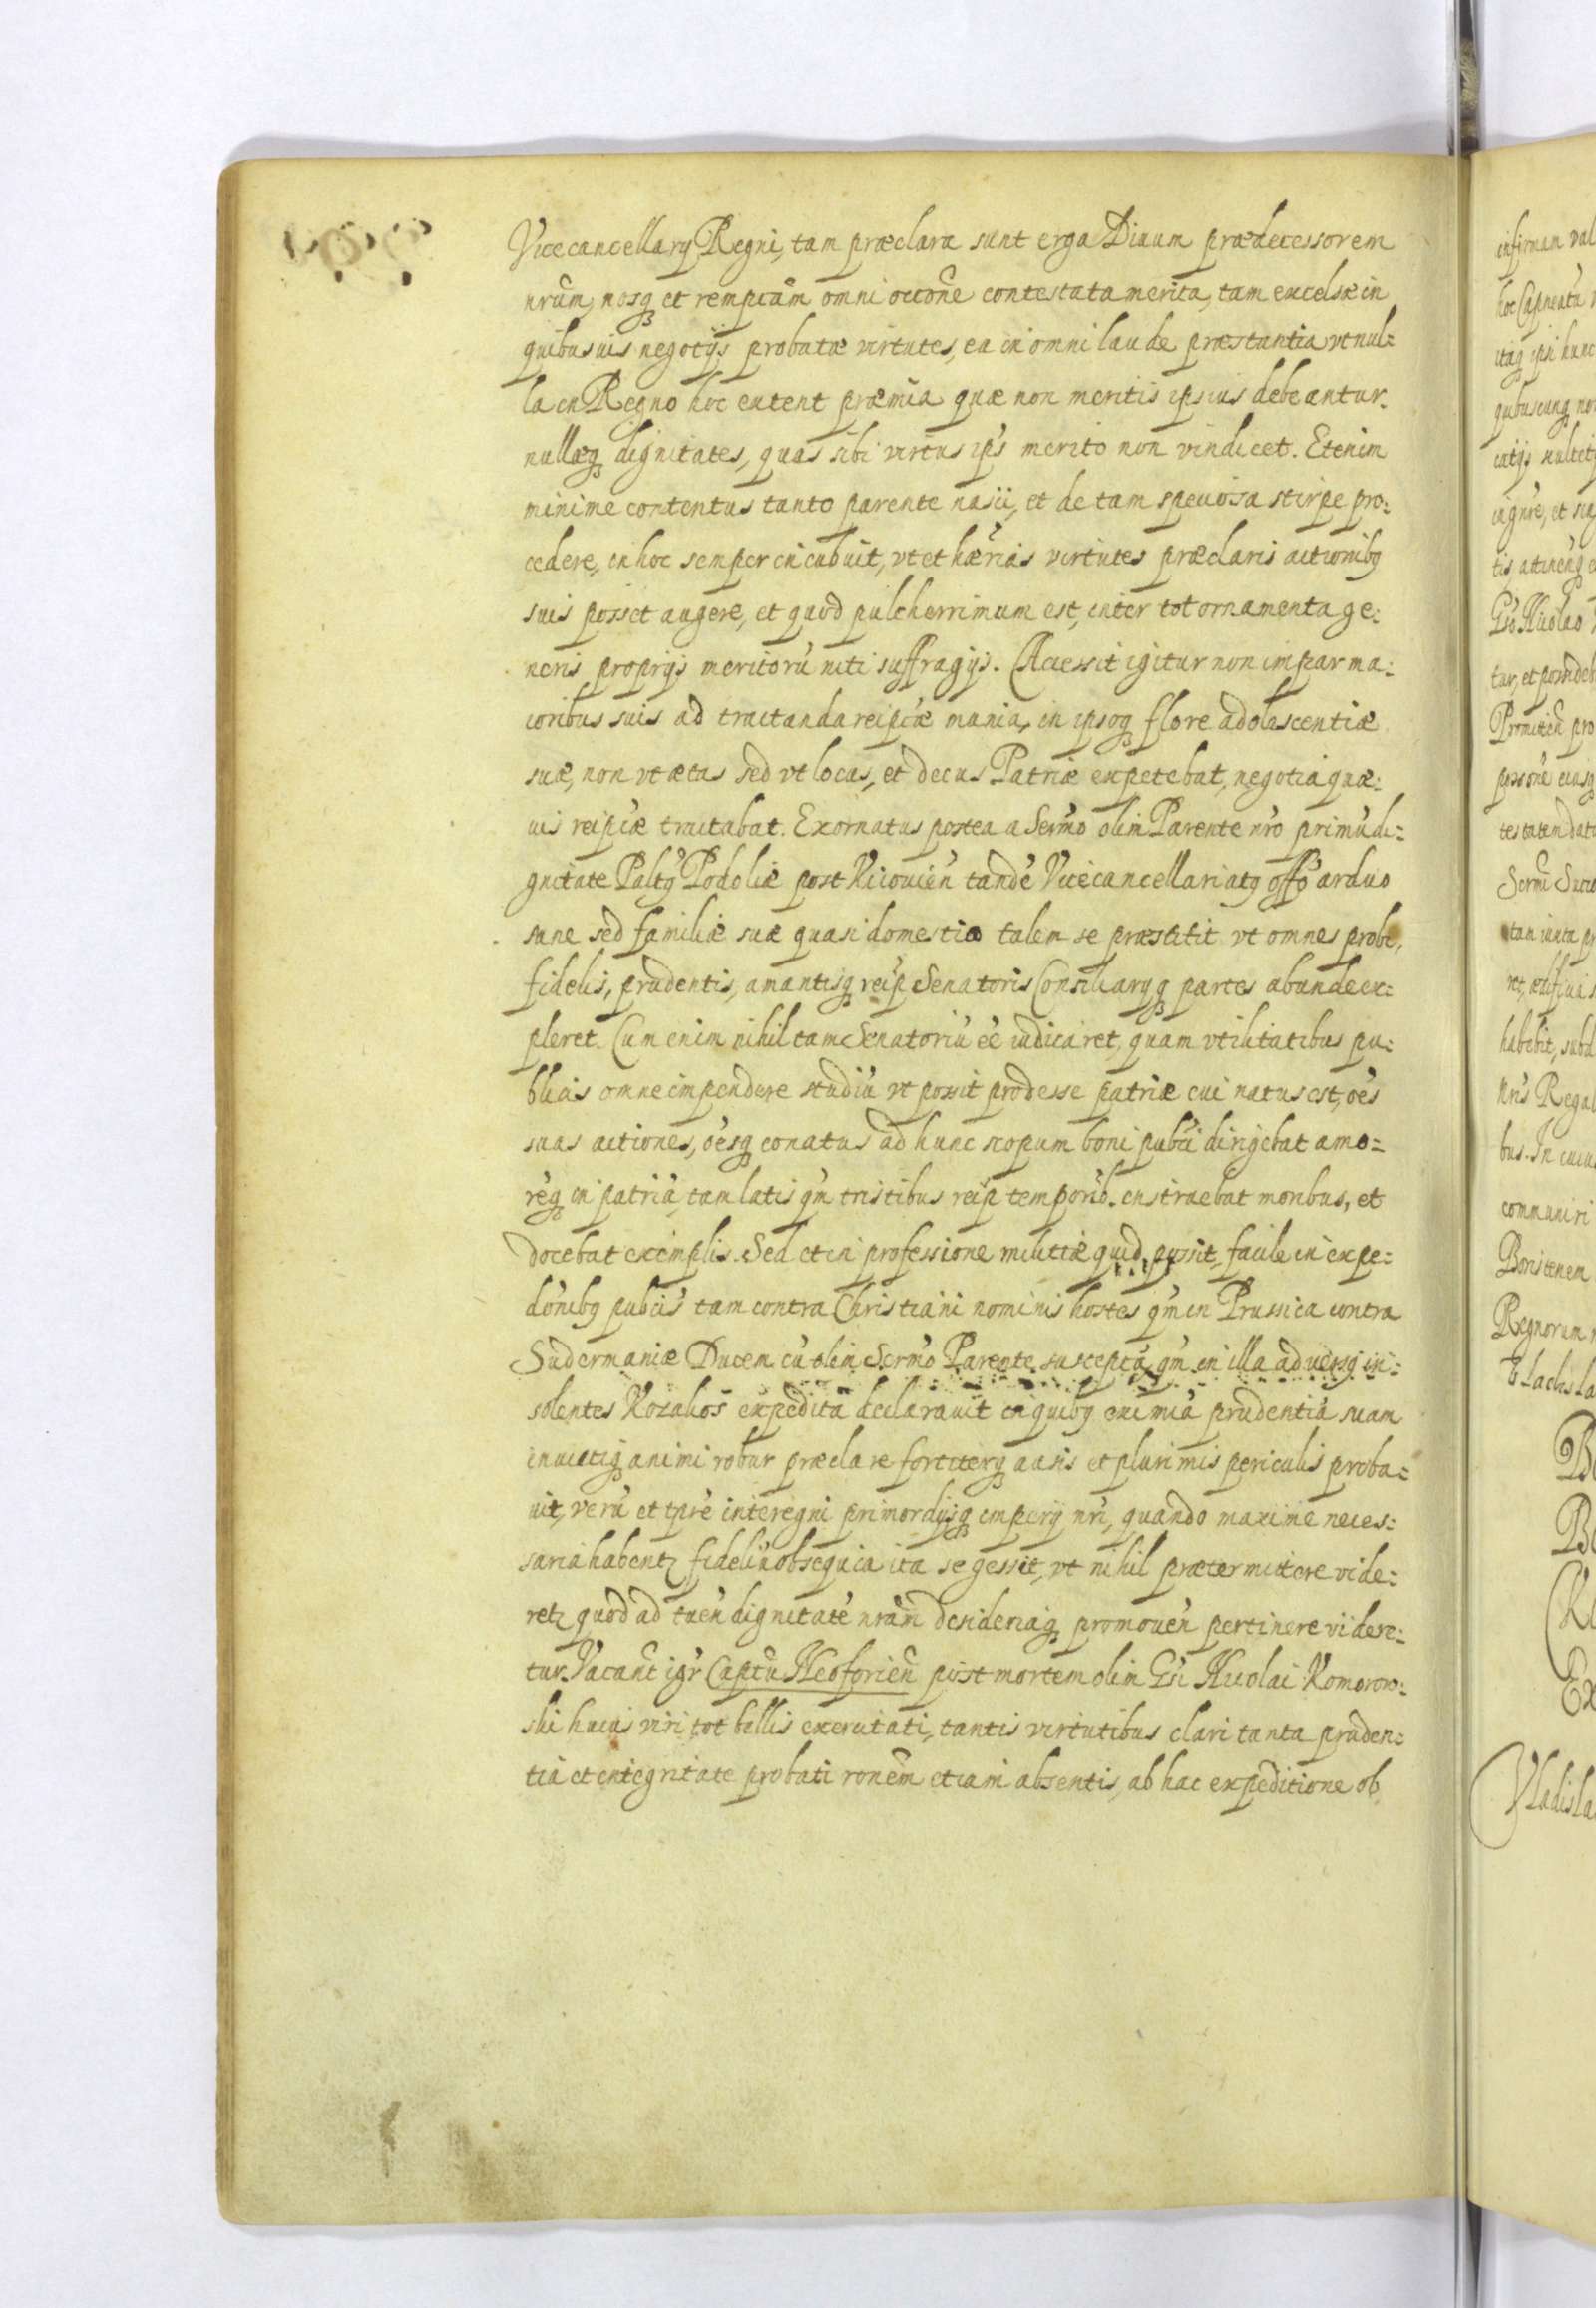 Vicecancellarij Regni, tam præclara sunt erga Diuum prædecessorem
nrum, nosq et rempcam omni occone contestata merita, tam excelsæ in
quibusuis negotijs probatæ virtutes, ea in omni laude præstantia vt nul=
la in Regno hoc extent præmia quæ non meritis ipsius debeantur.
nullæq dignitates, quas sibi virtus ips merito non vindicet. Etenim
minime contentus tanto parente nasci, et de tam speciosa stirpe pro=
cedere, in hoc semper incubuit, vt et hærias virtutes præclaris actionibq
suis posset augere, et quod pulcherrimum est, inter tot ornamenta ge=
neris proprijs meritorū niti suffragijs. Accessit igitur non impar ma=
ioribus suis ad tractanda reipcæ munia, in ipsoq flore adolescentiæ
suæ, non vt ætas sed vt locus, et decus Patriæ expetebat, negotia quæ=
uis reipcæ tractabat. Exornatus postea a Sermo olim Parente nro primū di=
gnitate Paltq Podoliæ post Kiiouien tandē Vicecancellariatq offo arduo
sane sed familiæ suæ quasi domestico talem se præstitit vt omnes probi,
fidelis, prudentis, amantisq reip Senatoris Consiliarijq partes abunde ex=
pleret. Cum enim nihil tam Senatoriū eē iudicaret, quam vtilitatibus pu=
blicis omne impendere studiū vt possit prodesse patriæ cui natus est, oes
suas actiones, oesq conatus ad hunc scopum boni pubci dirigebat amo=
rēq in patriā, tam lætis qm tristibus reip temporib. instruebat moribus, et
docebat exemplis. Sed et in professione militiæ quid possit, facile in expe=
donibq pubcis tam contra Christiani nominis hostes qm in Prussica contra
Sudermaniæ Ducem cū olim Sermo Parente suscepta, qm in illa aduersq in=
solentes Kozakos expedita declarauit in quibq eximiā prudentiā suam
inuictiq animi robur præclare fortiterq ausis et plurimis periculis proba=
uit, verū et tpre interegni primordijsq imperij nri, quando maxime neces=
saria habentz fideliū obsequia ita se gessit, vt nihil prætermittere vide=
retz quod ad tuen dignitatē nram desideriaq promouen pertinere videre=
tur. Vacante igr Captu Neoforien post mortem olim Gsi Nicolai Komorow=
ski huius viri, tot bellis exercitati, tantis virtutibus clari tanta pruden=
tia et integritate probati ronem etiam absentis, ab hac expeditione ob